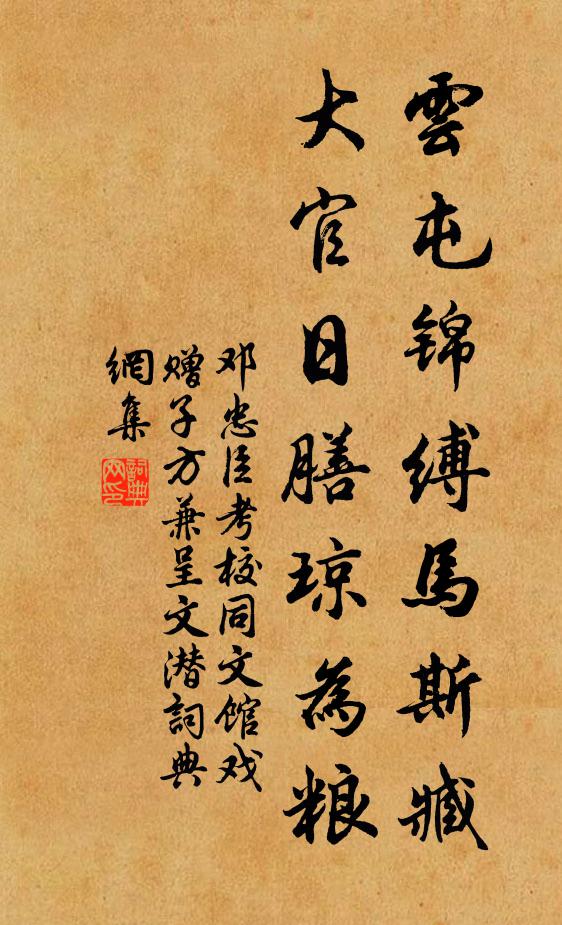 雲屯锦缚馬斯臧
大官日膳琼為粮
邓忠臣考校同文馆戏
赠子方兼呈文潜詞典
網集
詞典
网印